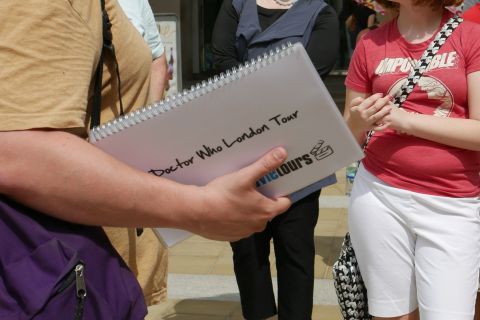 Doctor Who London Tour
tours
IMPOSSIBLE